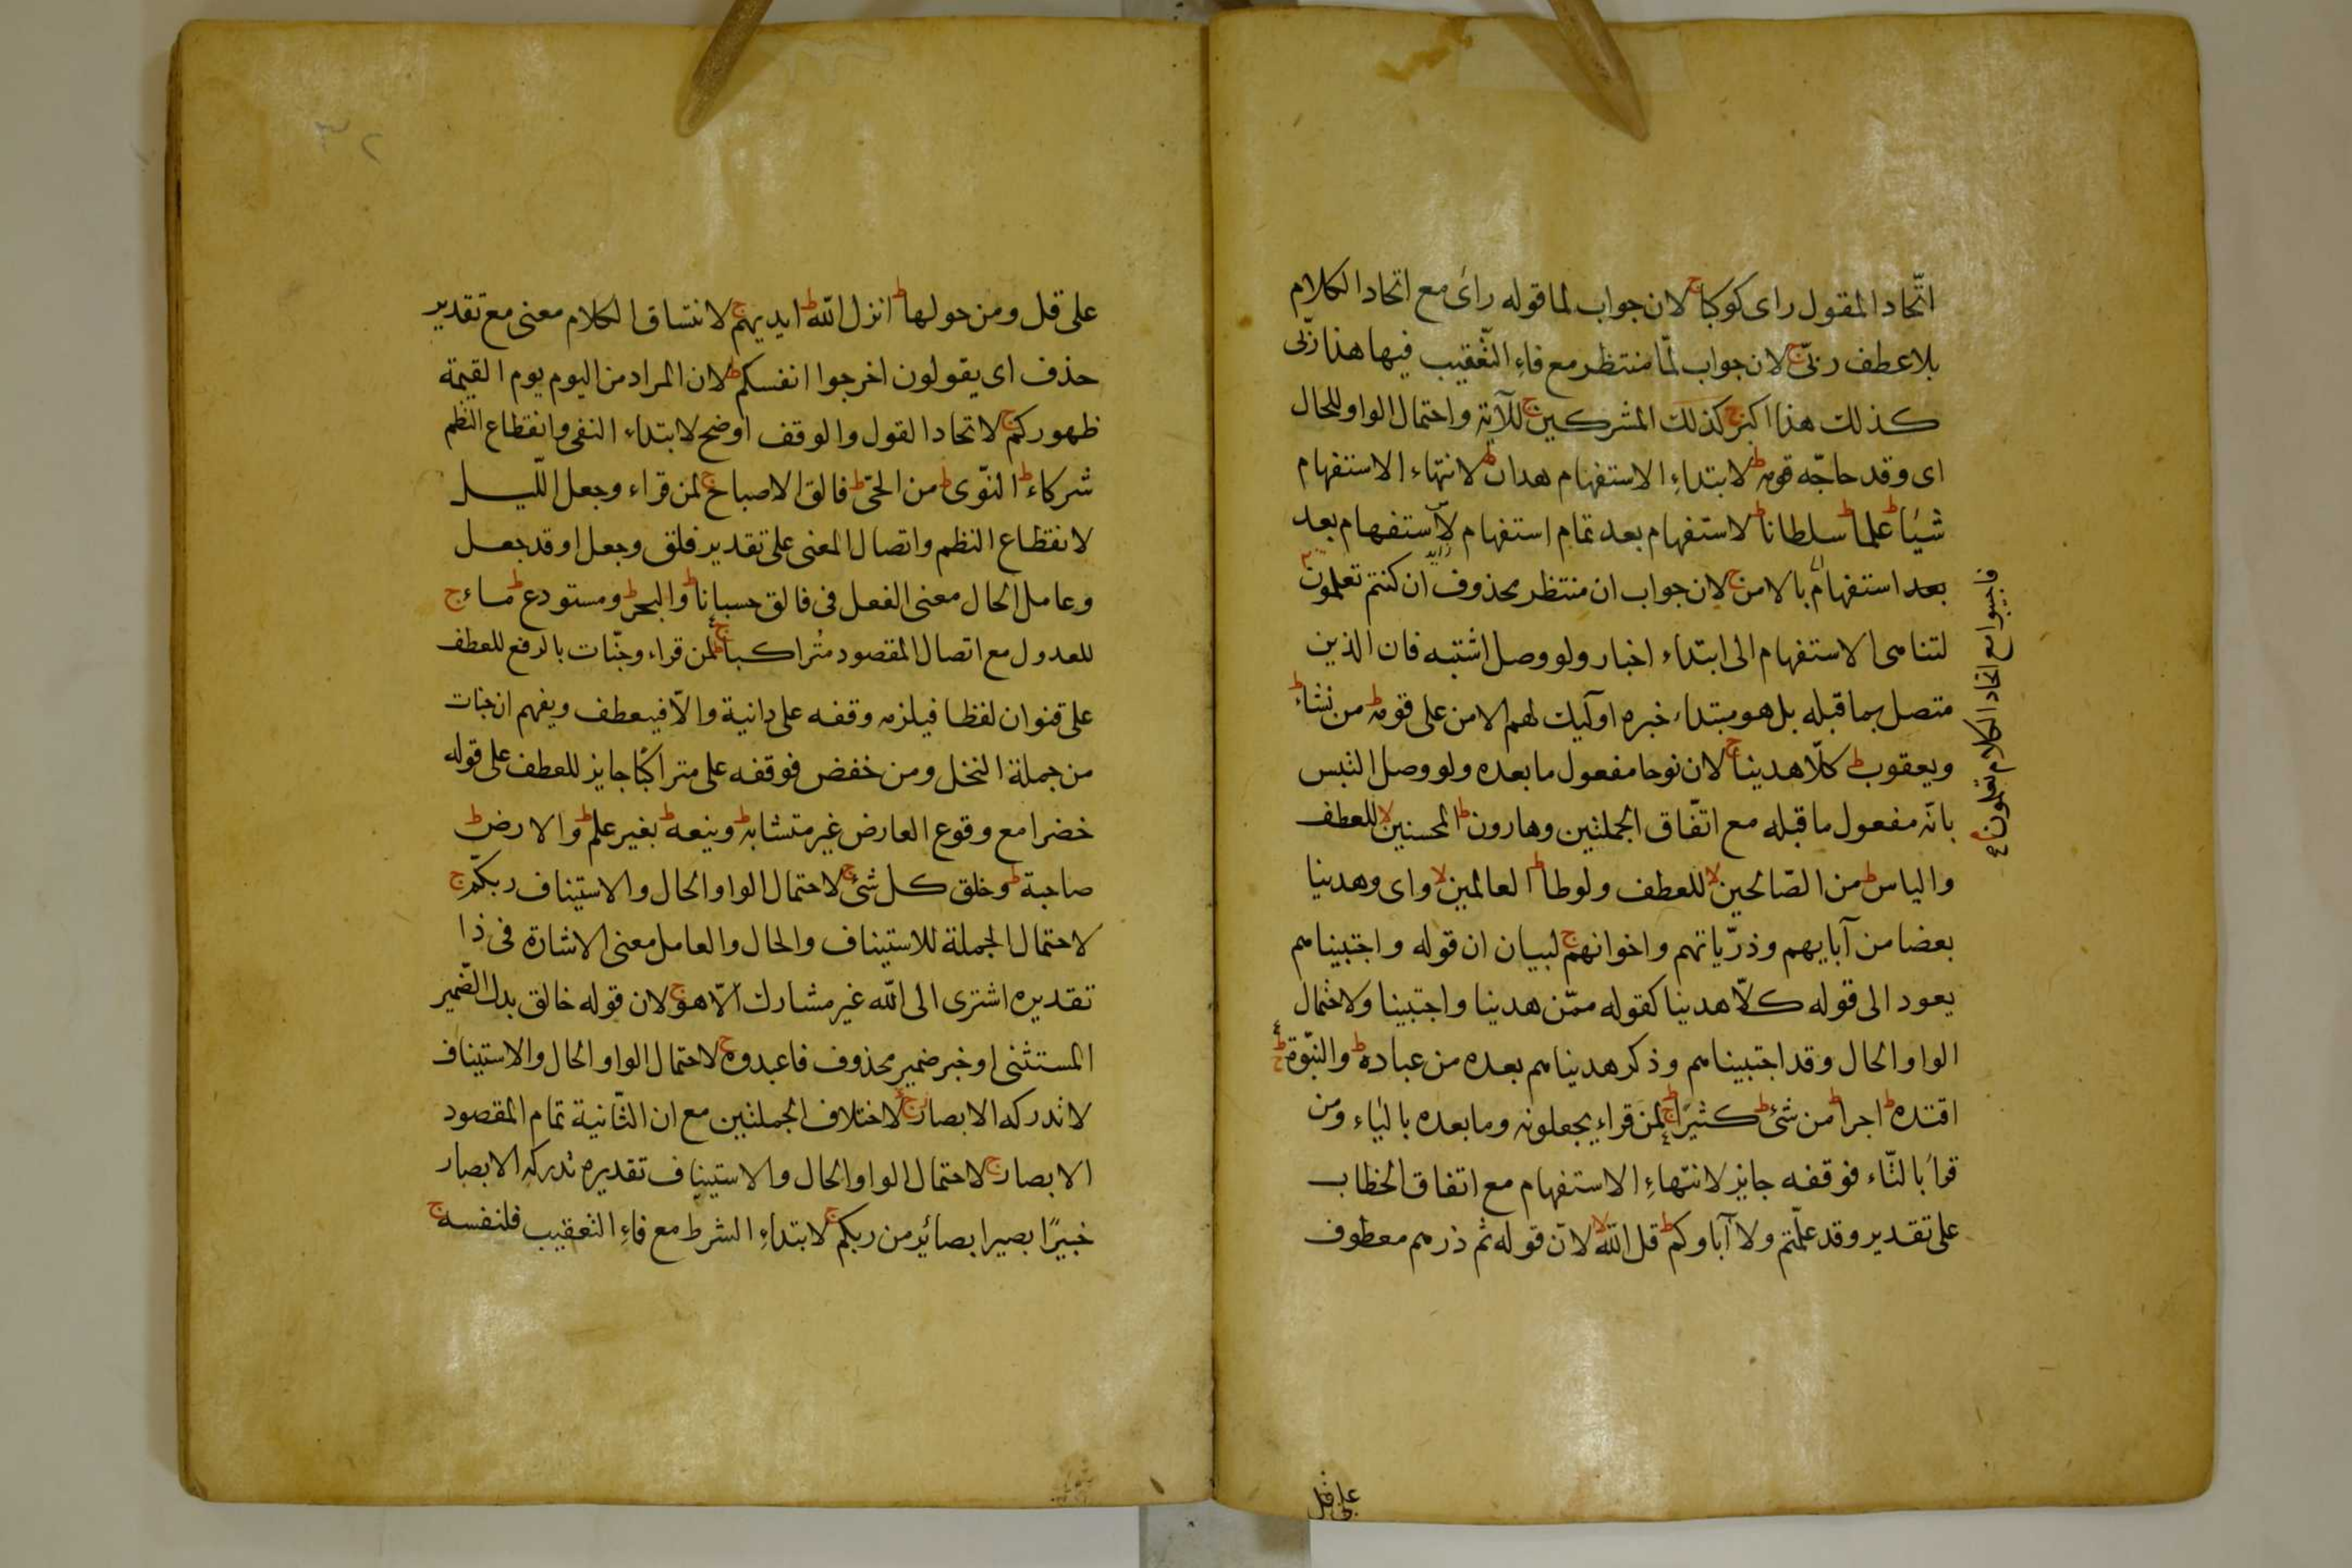 اتّحاد المقول راى كوكبا ج لان جواب لما قوله راى مع اتحاد الكلام
بلا عطف ربّى ج لان جواب لمّا منتظر مع فاء التّعقيب فيها هذا ربّى
كذلك هذا اكبر ج كذلك المشركين ج للآية واحتمال الواو للحال
اى وقد حاجّه قومه ط لابتداء الاستفهام هدان ط لانتهاء الاستفهام
شيئا ط علما ط سلطانا ط لاستفهام بعد تمام استفهام لاستفهام بعد
بعد استفهام بالامن ج لان جواب ان منتظر محذوف ان كنتم تعلمون
فاجيبوا مع اتحاد الكلام تعلمون
لتناهى الاستفهام الى ابتداء اخبار ولو وصل اشتبه فان الذين
متصل بما قبله بل هو مبتداء خبره اوليك لهم الامن على قومه ط من نشاء ط
ويعقوب ط كلّا هدينا ج لان نوحا مفعول ما بعده ولو وصل التبس
بانّه مفعول ما قبله مع اتّفاق الجملتين وهارون ط المحسنين لا للعطف
والياس ط من الصّالحين لا للعطف ولوطا ط العالمين لا واى وهدينا
بعضا من آبايهم وذرّياتهم واخوانهم ج لبيان ان قوله واجتبيناهم
يعود الى قوله كلّا هدينا كقوله ممّن هدينا واجتبينا ولاحتمال
الواو الحال وقد اجتبيناهم وذكر هديناهم بعده من عباده ط والنبّوة ط
اقتده ط اجرا ط من شئ ط كثيرًا ج لمن قراء يجعلونه وما بعده بالياء ومن
قرأ بالتّاء فوقفه جايز لانتهاء الاستفهام مع اتفاق الخطاب
على تقدير وقد علّمتم ولا آباوكم ط قل الله لا لانّ قوله ثم ذرهم معطوف
على قل
٣٢
على قل ومن حولها ط انزل الله ط ايديهم ج لانتساق الكلام معنى مع تقدير
حذف اى يقولون اخرجوا انفسكم ط لان المراد من اليوم يوم القيمة
ظهوركم ج لاتحاد القول والوقف اوضح لابتداء النفى وانقطاع النظم
شركاء ط النّوى ط من الحىّ ط فالق الاصباح ج لمن قراء وجعل اللّيل
لانقطاع النظم واتصال المعنى على تقدير فلق وجعل او قد جعل
وعامل الحال معنى الفعل فى فالق حسبانا ط والبحر ط ومستودع ط ماء ج
للعدول مع اتصال المقصود مُتراكبا ج لمن قراء وجنّات بالرفع للعطف
على قنوان لفظا فيلزمه وقفه على دانية والّا فيعطف ويفهم ان جنات
من جملة النخل ومن خفض فوقفه على متراكبًا جايز للعطف على قوله
خضرا مع وقوع العارض غير متشابه ط وينعه ط بغير علم ط والارض ط
صاحبة ط وخلق كل شئ ج لاحتمال الواو الحال والاستيناف ربكّم ج
لاحتمال الجملة للاستيناف والحال والعامل معنى الاشارة فى ذا
تقديره اشترى الى الله غير مشارك الّا هو ج لان قوله خالق بدل الضّمير
المستثنى او خبر ضمير محذوف فاعبدوه ج لاحتمال الواو الحال والاستيناف
لا تدركه الابصار ج لاختلاف الجملتين مع ان الثّانية تمام المقصود
الابصار ج لاحتمال الواو الحال والاستيناف تقديره تدركه الابصار
خبيرًا بصيرا بصائر من ربكم ج لابتداء الشرط مع فاء التعقيب فلنفسه ج